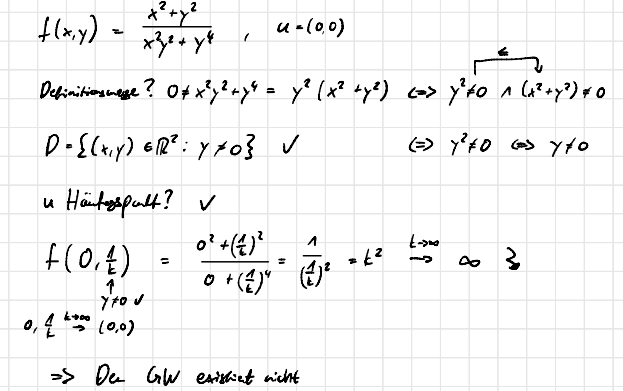 f(x,y) = (x²+y²)/(x²y²+y⁴) , u=(0,0)
Definitionsmenge? 0≠x²y²+y⁴ = y²(x²+y²) <=> y²≠0 ∧ (x²+y²)≠0
D={(x,y)∈ℝ²: y≠0} ✓ <=> y²≠0 <=> y≠0
u Häufungspunkt? ✓
f(0,1/k) = (0²+(1/k)²)/(0+(1/k)⁴) = 1/(1/k)² = k² k→∞ → ∞ ↯
↑
y≠0 ✓
0, 1/k k→∞ → (0,0)
=> Der GW existiert nicht